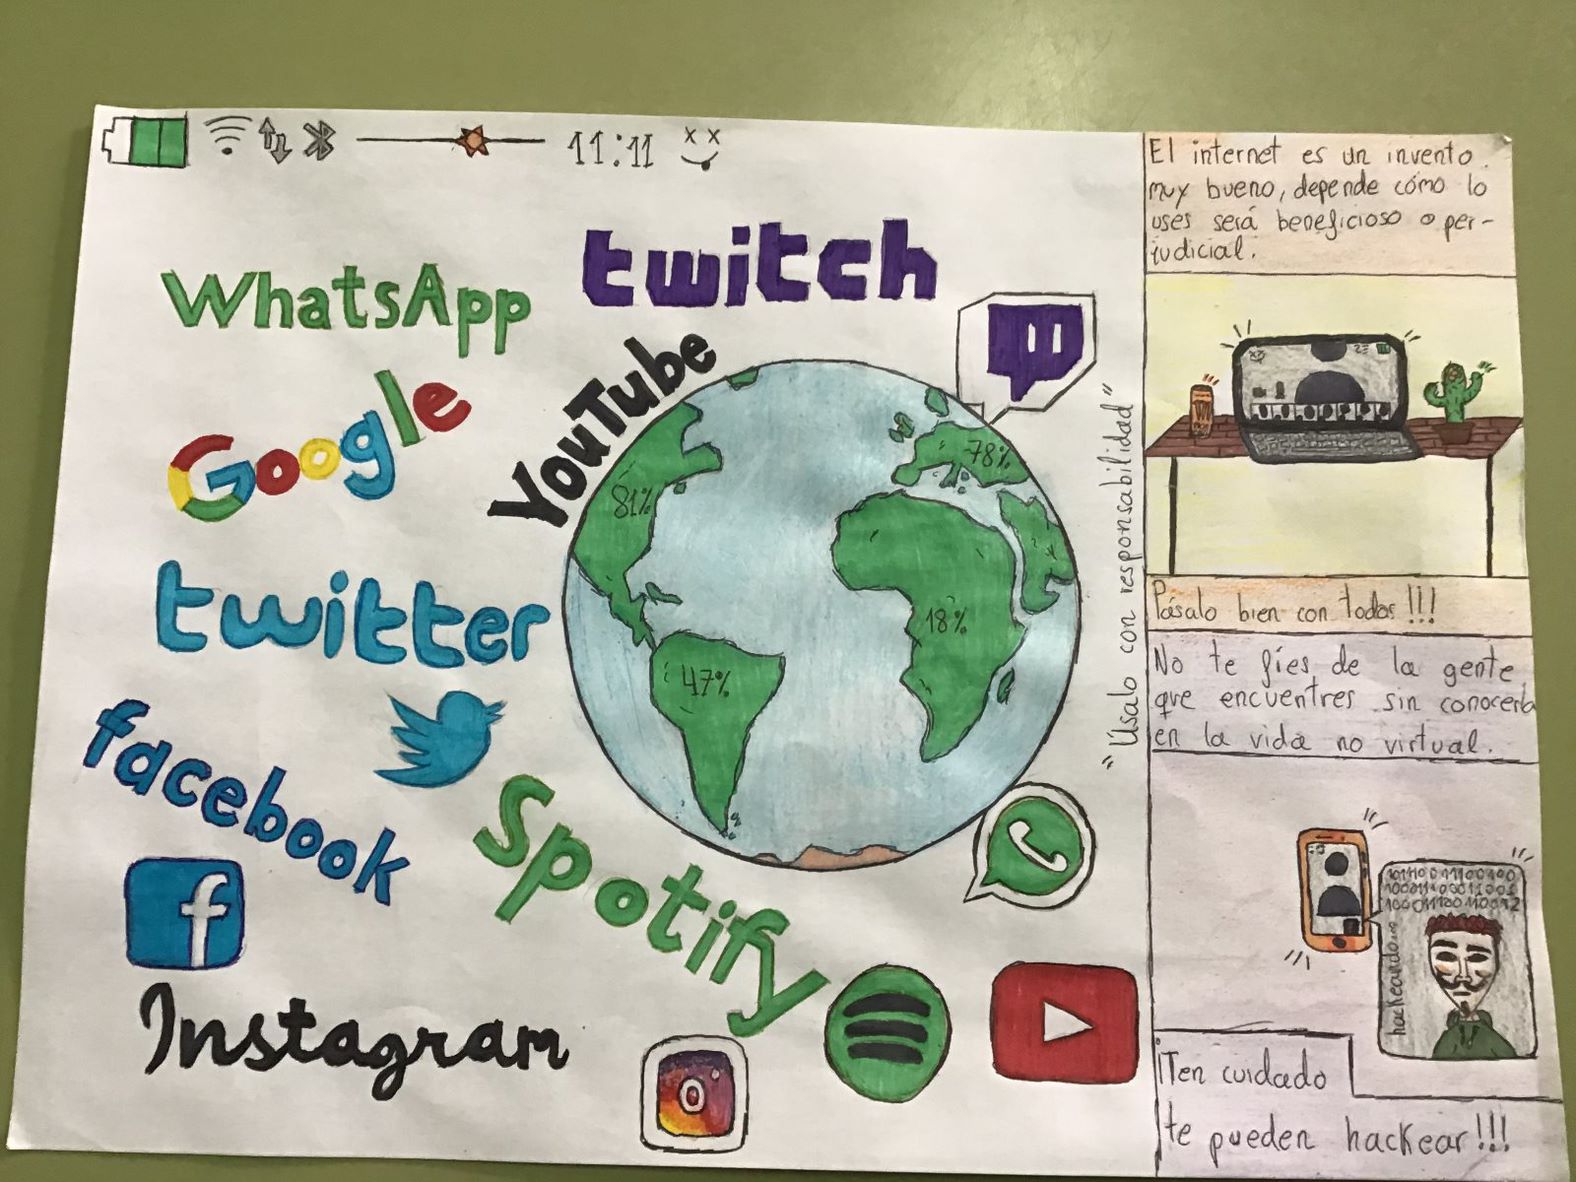 11:11
WhatsApp
twitch
Google
YouTube
twitter
facebook
f
Spotify
Instagram
81%
78%
18%
47%
"Úsalo con responsabilidad"
El internet es un invento
muy bueno, depende cómo lo
uses será beneficioso o per-
judicial.
Pásalo bien con todos!!!
No te fíes de la gente
que encuentres sin conocerla
en la vida no virtual.
hackeando...
¡Ten cuidado
te pueden hackear!!!